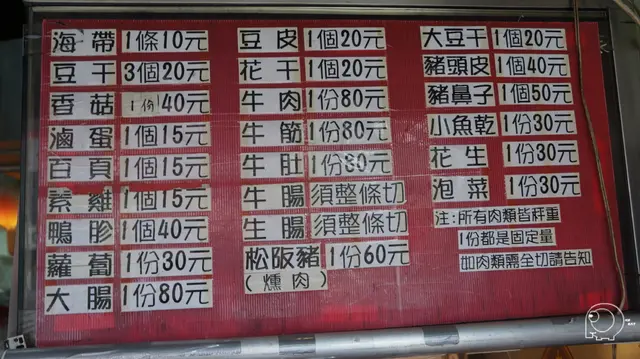 海帶 1條10元
豆干 3個20元
香菇 1份40元
滷蛋 1個15元
百頁 1個15元
素雞 1個15元
鴨胗 1個40元
蘿蔔 1份30元
大腸 1份80元
豆皮 1個20元
花干 1個20元
牛肉 1份80元
牛筋 1份80元
牛肚 1份80元
牛腸 須整條切
生腸 須整條切
松阪豬 1份60元
(燻肉)
大豆干 1個20元
豬頭皮 1個40元
豬鼻子 1個50元
小魚乾 1份30元
花生 1份30元
泡菜 1份30元
注:所有肉類皆秤重
1份都是固定量
如肉類需全切請告知